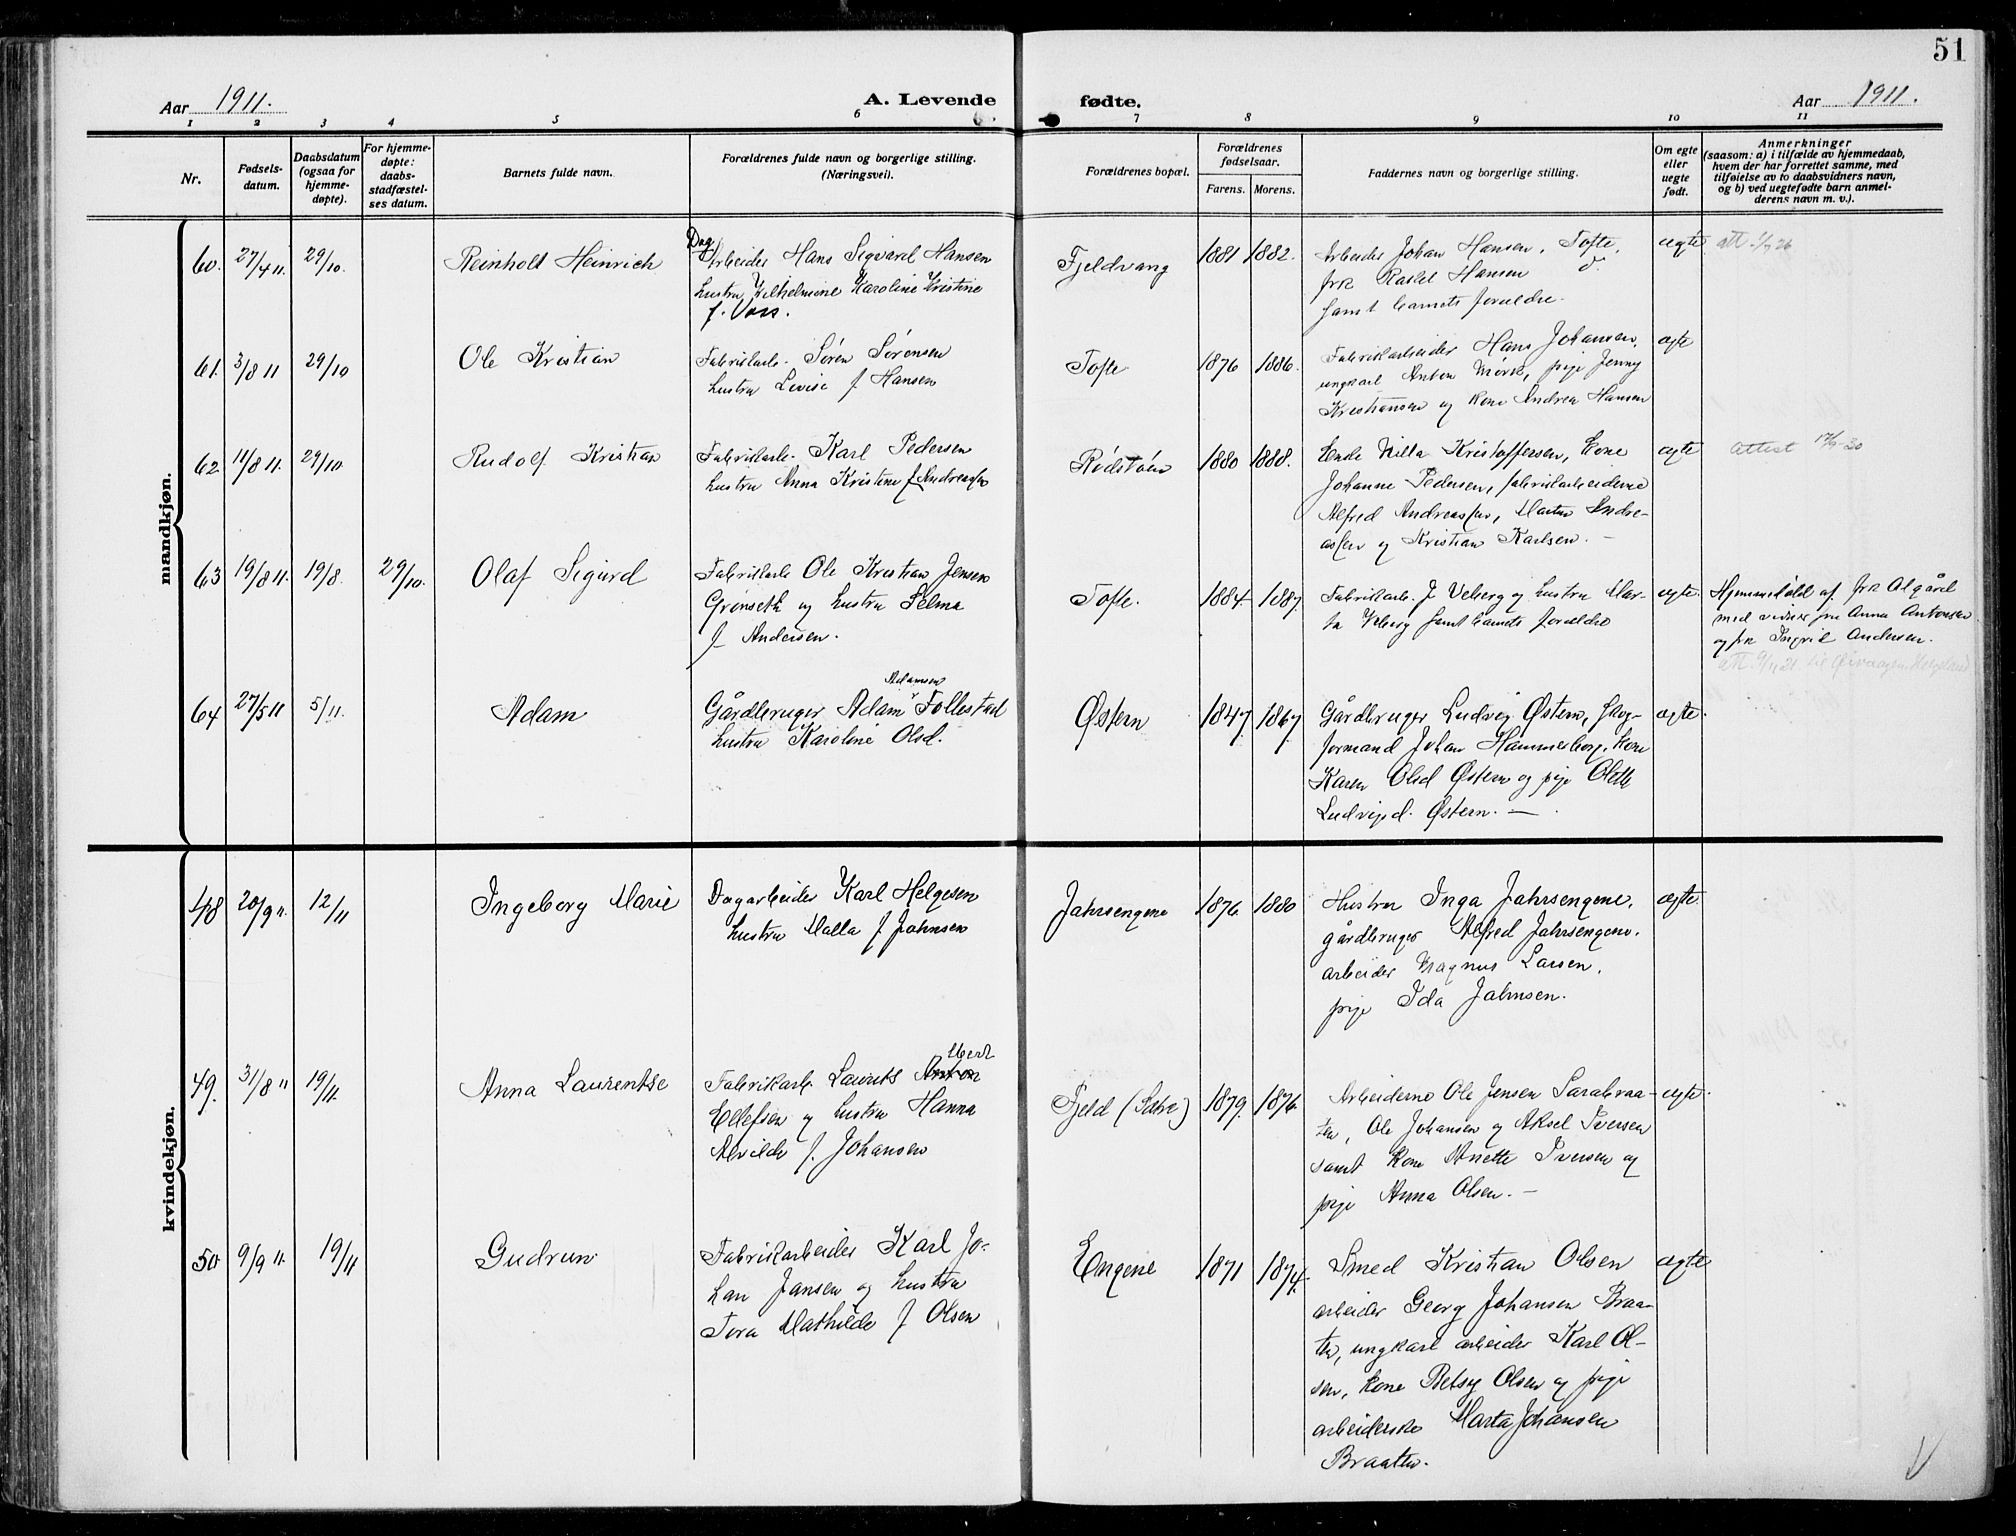 51
Aar 1911.
A. Levende fødte.
Aar 1911.
1 2 3 4 5 6 7 8 9 10 11
Nr.
Fødsels-
datum.
Daabsdatum
(ogsaa for
hjemme-
døpte).
For hjemme-
døpte:
daabs-
stadfæstel-
ses datum.
Barnets fulde navn.
Forældrenes fulde navn og borgerlige stilling.
(Næringsvei).
Forældrenes bopæl.
Forældrenes
fødselsaar.
Farens. Morens.
Faddernes navn og borgerlige stilling.
Om egte
eller
uegte
født.
Anmerkninger
(saasom: a) i tilfælde av hjemmedaab,
hvem der har forrettet samme, med
tilføielse av to daabsvidners navn,
og b) ved uegtefødte barn anmel-
derens navn m. v.).
mandkjøn.
60. 27/4 11. 29/10. Reinhold Heinrich
Dag
Arbeider Hans Sigvard Hansen
hustru Vilhelmine Karoline Kristine
f. Voss.
Fjeldvang 1881 1882.
Arbeider Johan Hansen, Tofte,
frk Rakel Hansen d.
samt barnets forældre.
ægte att 1/7 26
61. 3/8 11 29/10 Ole Kristian
Fabrikarb. Søren Sørensen
hustru Lovise f. Hansen
Tofte 1876 1886.
Fabrikarbeider Hans Johansen,
ungkarl Anton Mørk, pige Jenny
Kristiansen og kone Andrea Hansen
ægte
62 11/8 11. 29/10. Rudolf Kristian
Fabrikarb. Karl Pedersen
hustru Anna Kristine f. Andreassen
Rødstøen 1880 1888.
Enke Milla Kristoffersen, kone
Johanne Pedersen, fabrikarbeiderne
Alfred Andreassen, Martin Andre-
assen og Kristian Karlsen. —
ægte Attest 17/9-30
63 19/8 11. 19/8. 29/10. Olaf Sigurd
Fabrikarb Ole Kristian Jensen
Grønseth og hustru Selma
f Andersen.
Tofte. 1884. 1887.
Fabrikarb. J Veberg og hustru Mar-
ta Veberg samt barnets forældre
ægte.
Hjemmedøbt af frk Algård
med vidner fru Anna Antonsen
og frk Ingrid Andersen.
att. 9/11 21. til Helgeland
64 27/5 11 5/11. Adam
Adamsen
Gårdbruger Adam Follestad
hustru Karoline Olsd.
Østern 1847. 1867.
Gårdbruger Ludvig Østern, skog-
formand Johan Hammerborg, kone
Karen Olsd Østern og pige Olette
Ludvigsd. Østern. —
ægte
kvindekjøn.
48 20/9 11. 12/11 Ingeborg Marie
Dagarbeider Karl Helgesen
hustru Malla f Johnsen
Jahrsengene 1876. 1880
Hustru Inga Jahrsengene,
gårdbruger Alfred Jahrsengene.
arbeider Magnus Larsen,
pige Ida Johnsen.
ægte.
49. 31/8 11 19/11. Anna Laurentse
Fabrikarb. Laurits Anton
Ellefsen og hustru Hanna
Alvilde f. Johansen
Fjeld (Sætre) 1879. 1876.
Arbeiderne Ole Jensen Sarabraa-
ten, Ole Johansen og Aksel Iversen
samt kone Anette Iversen og
pige Anna Olsen. —
ægte.
50 9/9 11. 19/11 Gudrun
Fabrikarbeider Karl Jo-
han Jansen og hustru
Tora Mathilde f Olsen
Engene 1871 1874.
Smed Kristian Olsen
arbeider Georg Johansen Braa-
ten, ungkarl arbeider Karl Ol-
sen, kone Betsy Olsen og pige
arbeiderske Marta Johansen
Braaten.
ægte